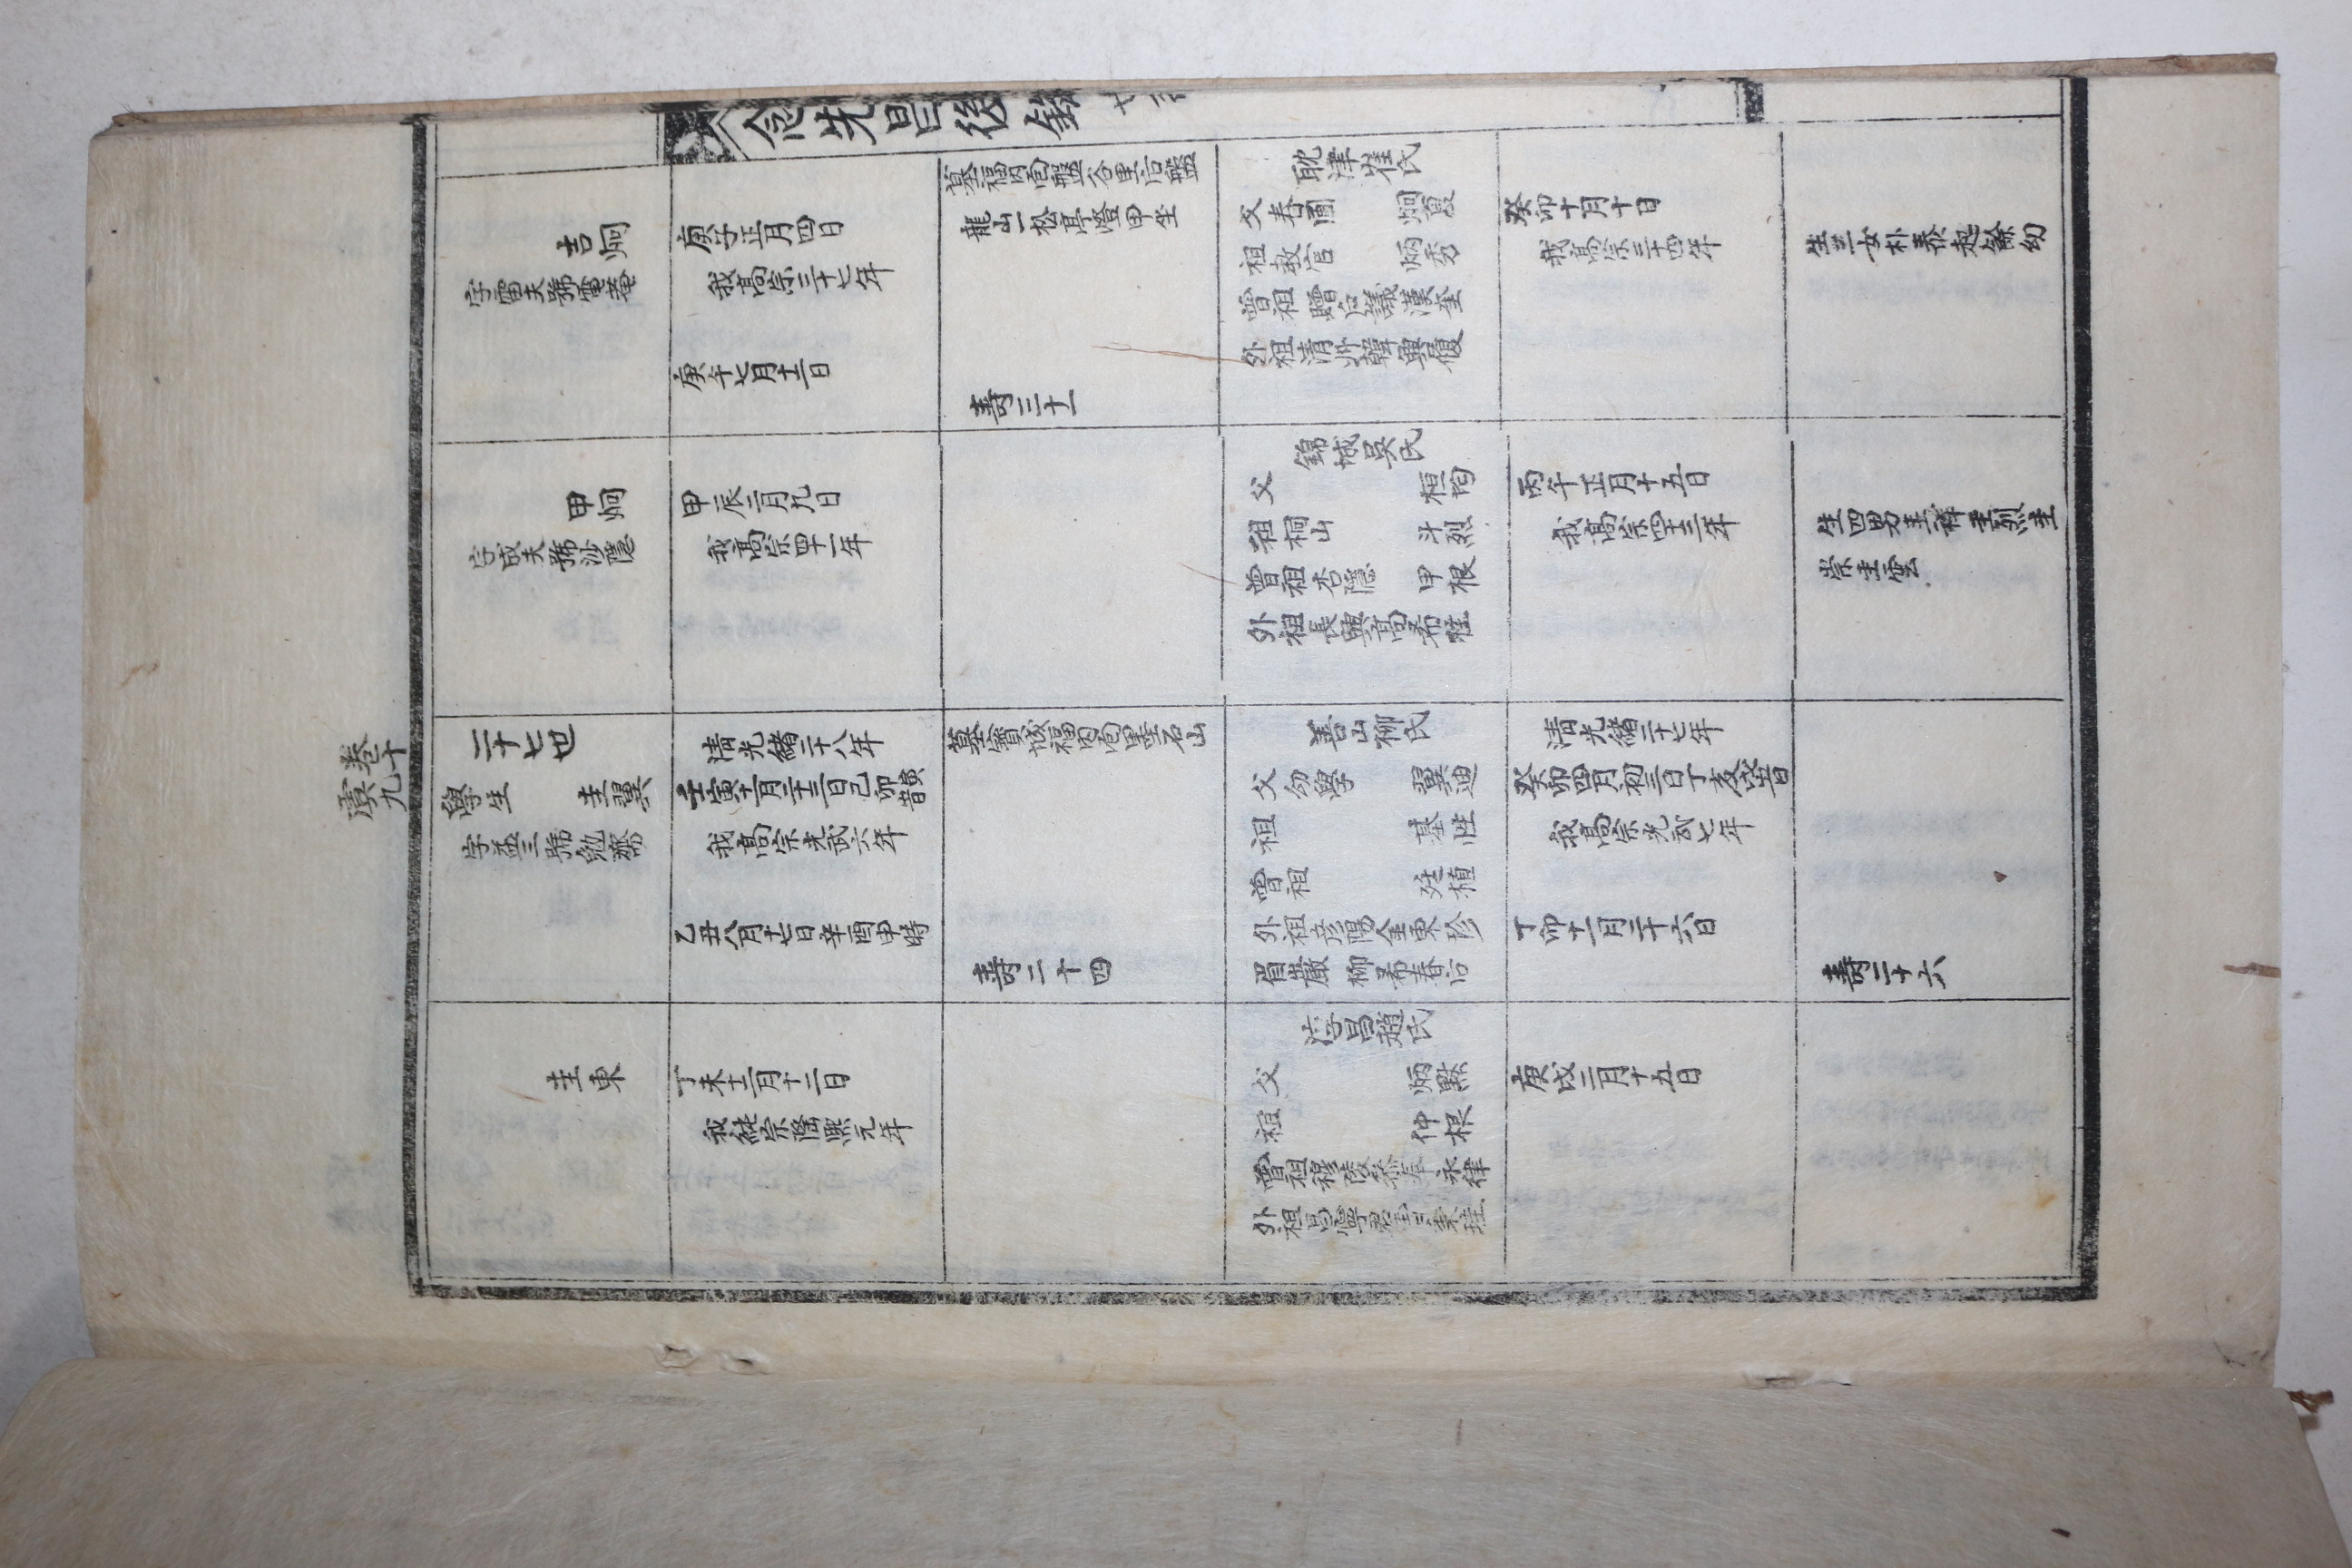 卷十
虞九
念先昌後錄
吉炯
字雷夫號電菴
庚子正月四日
我高宗三十七年
庚午七月十二日
墓福內面盤谷里后盤
龍山一松亭嶝甲坐
壽三十一
耽津崔氏
父春圃 炯夏
祖敎官 炳秀
曾祖贈右議漢奎
外祖淸州韓興履
癸卯十月十日
我高宗三十四年
生三女朴泰起餘幼
甲炯
字成夫號沙隱
甲辰二月九日
我高宗四十一年
錦城吳氏
父 桓均
祖桐山 斗烈
曾祖杏隱 甲根
外祖長興高希柱
丙午正月十五日
我高宗四十三年
生四男圭祥圭烈圭
崇圭雲
二十七世
學生 圭翼
字益三號勉齋
淸光緖二十八年
壬寅十一月二十三日己卯寅時
我高宗光武六年
乙丑八月十七日辛酉申時
墓寶城福內面墨石山
壽二十四
善山柳氏
父幼學 翼迪
祖 基性
曾祖 廷植
外祖彦陽金東珍
眉巖 柳希春后
淸光緖二十七年
癸卯四月初三日丁亥
我高宗光武七年
丁卯十一月二十六日
壽二十六
圭東
丁未十二月十二日
我純宗隆熙元年
淳昌趙氏
父 炳點
祖 仲根
曾祖穆陵參奉永律
外祖昌寧
庚戌二月十五日